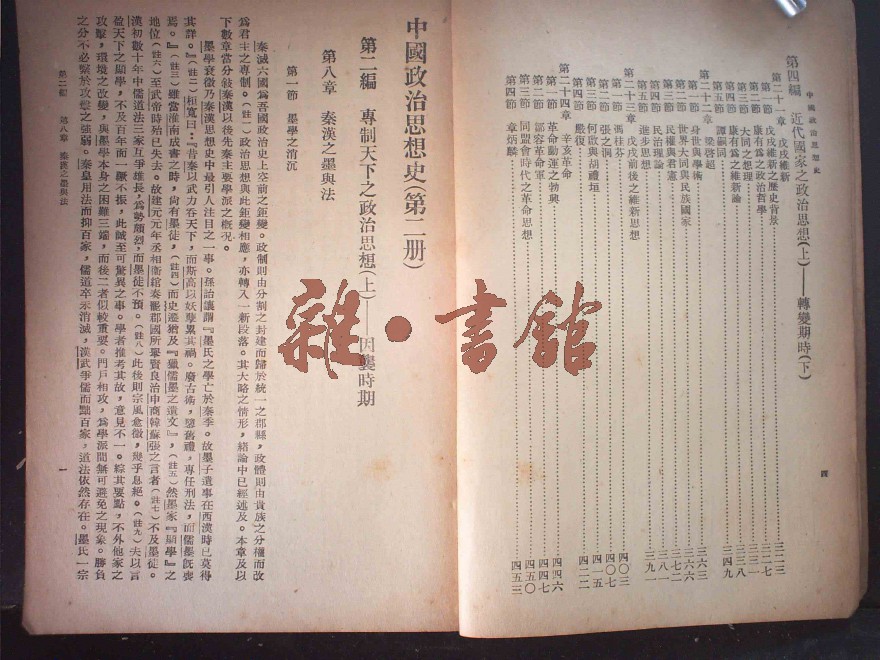 中國政治思想史
四
第四編 近代國家之政治思想(上)——轉變期時(下)
第二十一章 戊戌維新
第一節 戊戌維新之歷史背景
第二節 康有爲之政治哲學
第三節 大同之理想
第四節 康有爲之維新論
第五節 譚嗣同
第二十二章 梁啓超
第一節 身世與學術
第二節 世界大同與民族國家
第三節 民權與君憲
第四節 民治理論
第五節 進步思想
第二十三章 戊戌前後之維新思想
第一節 馮桂芬
第二節 張之洞
第三節 何啟與胡禮垣
第四節 嚴復
第二十四章 辛亥革命
第一節 革命動運之勃興
第二節 鄒容革命軍
第三節 同盟會時代之革命思想
第四節 章炳麟
中國政治思想史(第二册)
第二編 專制天下之政治思想(上)——因襲時期
第八章 秦漢之墨與法
第一節 墨學之消沉
秦滅六國爲吾國政治史上空前之鉅變。政制則由分割之封建而歸於統一之郡縣,政體則由貴族之分權而改
爲君主之專制。(註一)政治思想與此鉅變相應,亦轉入一新段落。其大略之情形,緒論中已經述及。本章及以
下數章當分敍秦漢以後先秦主要學派之概况。
墨學衰微乃秦漢思想史中最引人注目之一事。孫詒讓謂『墨氏之學亡於秦季。故墨子遺事在西漢時已莫得
其詳。』(註二)桓寬曰:『昔秦以武力吞天下,而斯高以妖孽累其禍。廢古術,隳舊禮,專任刑法,而儒墨旣喪
焉。』(註三)雖當淮南成書之時,尙有墨徒,(註四)而史遷猶及『獵儒墨之遺文』,(註五)然墨家『顯學』之
地位(註六)至武帝時殆已失去。故建元元年丞相衛綰奏罷郡國所舉賢良治申商韓蘇張之言者(註七)不及墨徒。
漢初數十年中儒道法三家互爭雄長,爲勢頗烈,而墨徒不預。(註八)此後則宗風愈微,幾乎息絕。(註九)夫以言
盈天下之顯學,不及百年而一蹶不振,此誠至可驚異之事。學者推考其故,意見不一。綜其要點,不外他家之
攻擊,環境之改變,與墨學本身之困難三端,而後二者似較重要。門戶相攻,爲學派間無可避免之現象。勝負
之分不必繫於攻禦之強弱。秦皇用法而抑百家,儒道卒未消滅,漢武爭儒而黜百家,道法依然存在。墨氏一宗
第二編 第八章 秦漢之墨與法
一
雜·書館